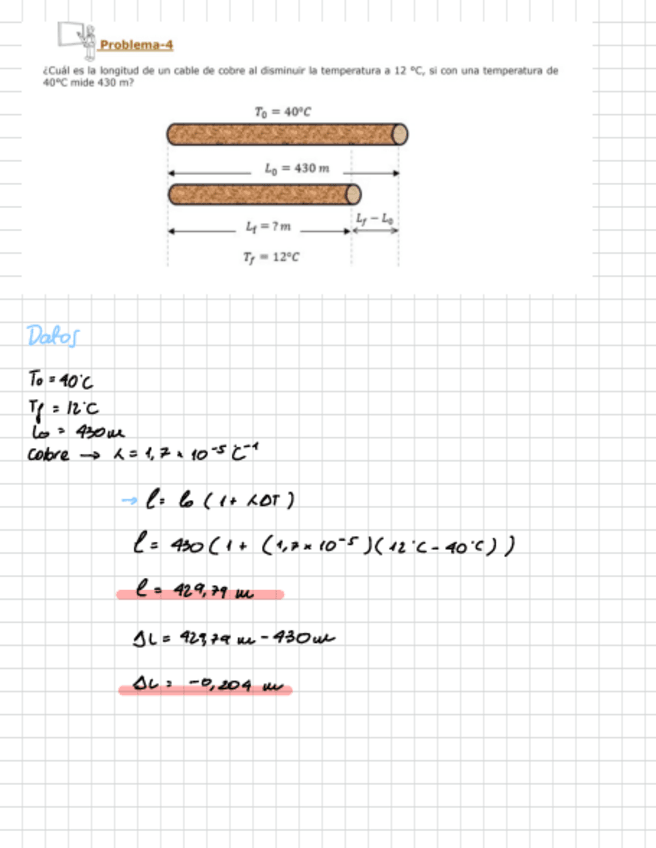 Problema-4
¿Cuál es la longitud de un cable de cobre al disminuir la temperatura a 12 °C, si con una temperatura de
40°C mide 430 m?
T₀ = 40°C
L₀ = 430 m
L_f = ? m
L_f − L₀
T_f = 12°C
Datos
T₀ = 40°C
T_f = 12°C
L₀ = 430m
Cobre → λ = 1,7 × 10⁻⁵ C⁻¹
→ l = l₀ (1 + λΔT)
l = 430 (1 + (1,7 × 10⁻⁵)(12°C - 40°C))
l = 429,79 m
ΔL = 429,79 m - 430 m
ΔL = -0,204 m